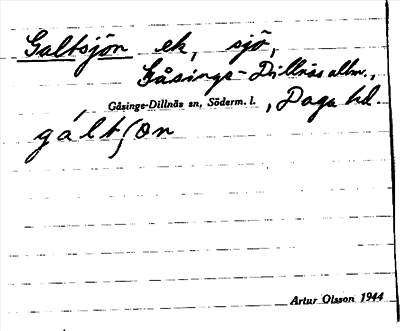 Galtsjön ek, sjö,
Gåsinge-Dillnäs allm.,
Gåsinge-Dillnäs sn, Söderm. l. , Daga hd.
gáltʃön
Artur Olsson 1944